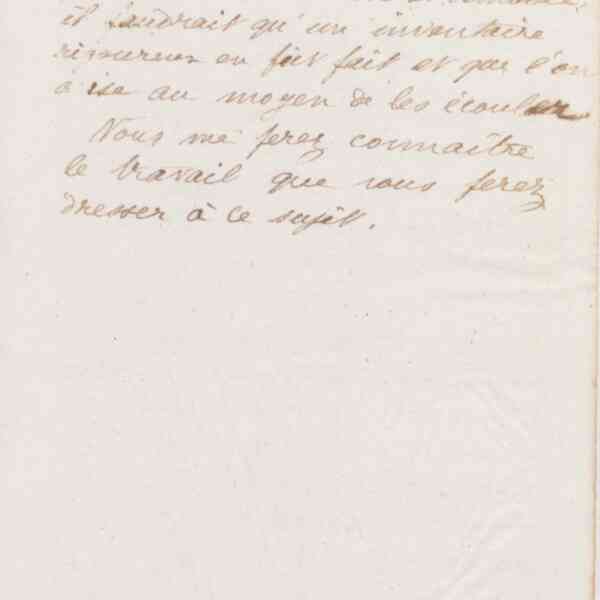 il faudrait qu'un inventaire
rigoureux en fût fait et que l'on
avise au moyen de les écouler.
Nous me ferez connaître
le travail que vous ferez
dresser à ce sujet.